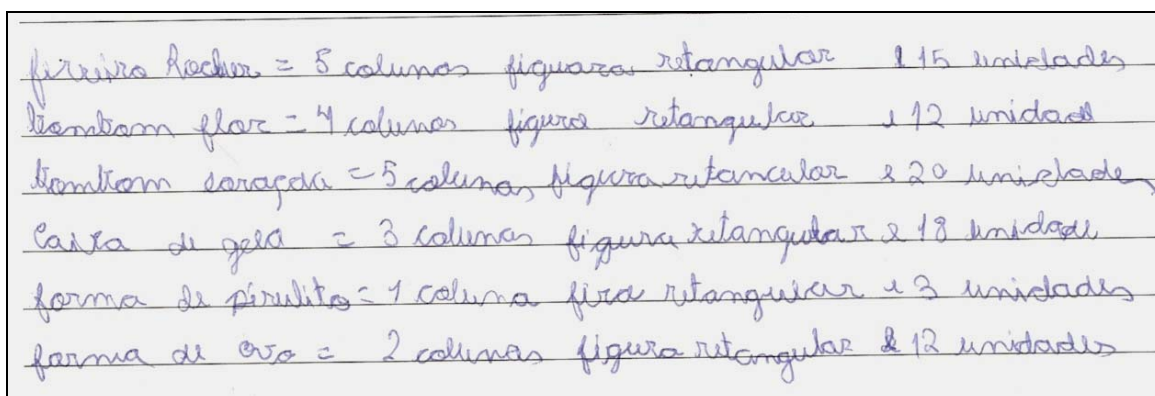 firreiro Rocher = 5 colunas figuaras retangular e 15 unidades
bombom flor = 4 colunas figura retangular e 12 unidade
bombom coração = 5 colunas figura retancular e 20 unidades
Caixa de gelo = 3 colunas figura retangular e 18 unidade
forma de pirulito = 1 coluna fira retangular e 3 unidades
forma de ovo = 2 colunas figura retangular e 12 unidades